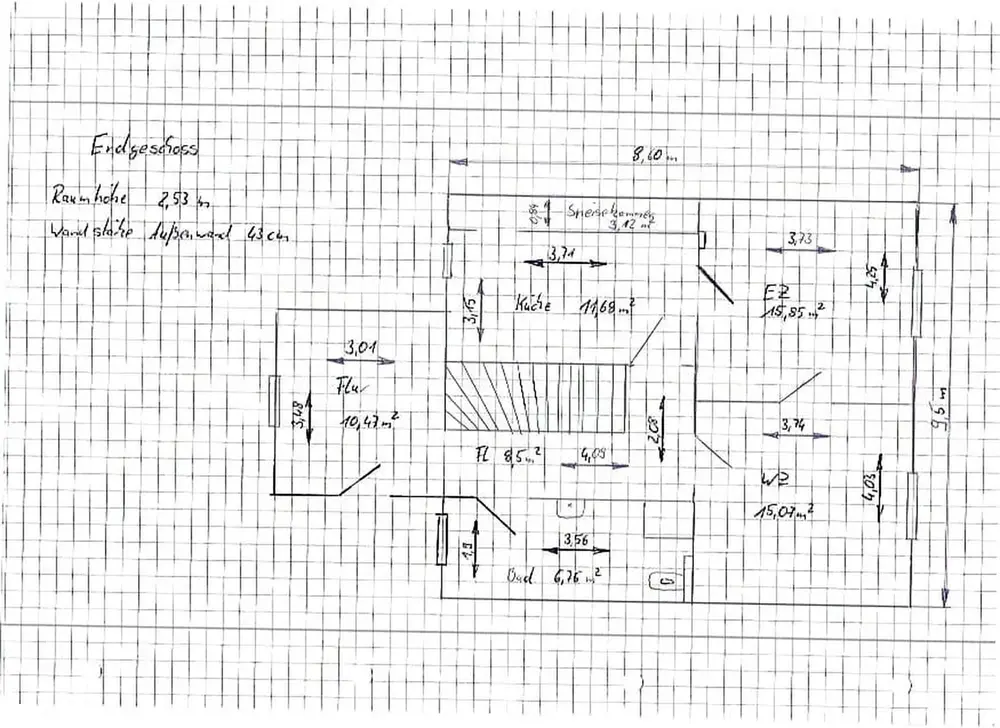 Erdgeschoss
Raumhöhe 2,53 m
Wandstärke Außenwand 43 cm
8,60 m
0,84
Speisekammer
3,12 m²
3,71
3,73
4,25
3,15
Küche 11,68 m²
EZ
15,85 m²
3,01
Flur
3,48
10,47 m²
9,5 m
2,08
3,74
Fl 8,5 m²
4,09
WZ
4,03
15,07 m²
1,9
3,56
Bad 6,76 m²